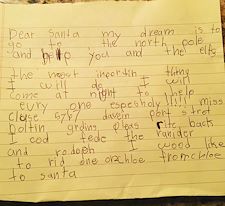 Dear Santa my dream is to
go to the north pole
and help you and the elfs
the most importin thing
I will do I will
come at night to help
evry one especholy!!!! miss
clause 5767 davein port stret
boltin grdins pleas rite back
I cod fede the rander
and rodolph I wood like
to rid one
to santa